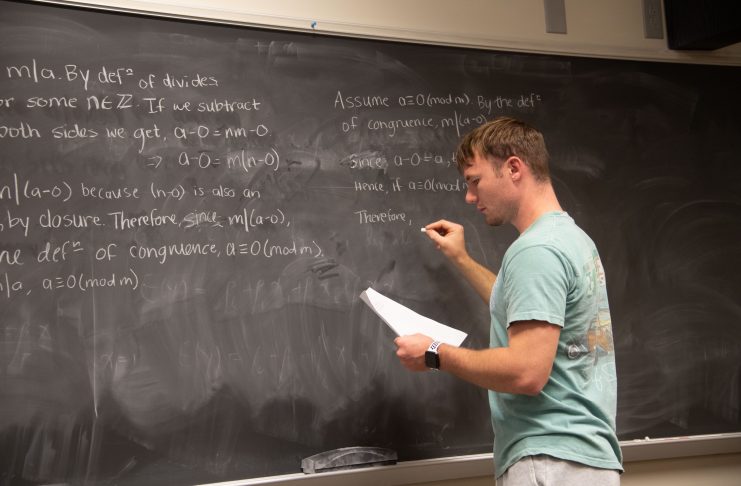 m|a. By defⁿ of divides
or some n∈ℤ. If we subtract
both sides we get, a-0=nm-0.
⇒ a-0=m(n-0)
m|(a-0) because (n-0) is also an
by closure. Therefore, since m|(a-0),
defⁿ of congruence, a≡0(mod m).
|a, a≡0(mod m).
Assume a≡0(mod m). By the defⁿ
of congruence, m|(a-0)
Since a-0=a,
Hence, if a≡0(mod m)
Therefore,